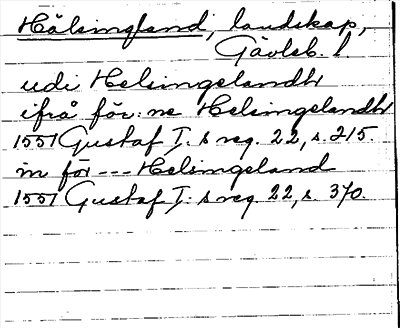 Hälsingland, landskap,
Gävleb. l
udi Helsingelandh
ifrå för:ne Helsingelandh
1551 Gustaf I:s reg. 22, s. 215.
in för --- Helsingeland
1551 Gustaf I:s reg. 22, s. 370.